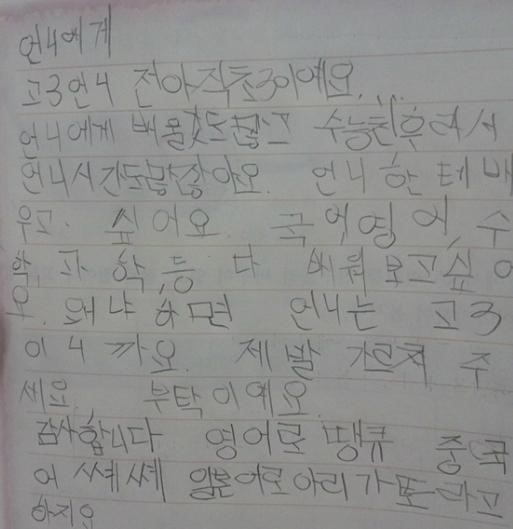 언니에게
고3언니 전아직초3이예요...
언니에게 배울것도많고 수능친후라서
언니시간도많잖아요. 언니 한테 배
우고 싶어요. 국어,영어, 수
학, 과학,등 다 배워보고싶어
요. 왜냐하면 언니는 고3
이니까요. 제발 가르쳐 주
세요. 부탁이예요.
감사합니다 영어로 땡큐 중국
어 쎼쎼 일본어로아리가또라고
하지요